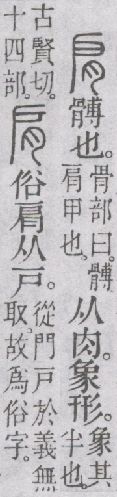 髆也。骨部曰。髆肩甲也。从肉。象形。象其半也。
古賢切。十四部。肩俗肩从戶。從門戶於義無取。故為俗字。